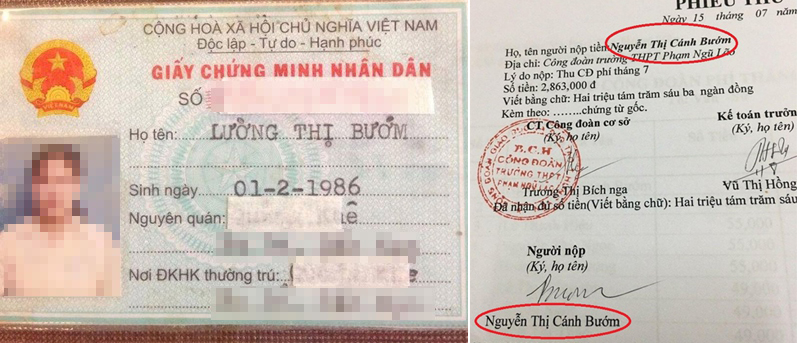 CỘNG HOÀ XÃ HỘI CHỦ NGHĨA VIỆT NAM
Độc lập - Tự do - Hạnh phúc
GIẤY CHỨNG MINH NHÂN DÂN
SỐ
Họ tên: LƯỜNG THỊ BƯỚM
Sinh ngày 01-2-1986
Nguyên quán:
Nơi ĐKHK thường trú:
VIỆT NAM
PHIẾU THU
Ngày 15 tháng 07
Họ, tên người nộp tiền Nguyễn Thị Cánh Bướm
Địa chỉ: Công đoàn trường THPT Phạm Ngũ Lão
Lý do nộp: Thu CĐ phí tháng 7
Số tiền: 2,863,000 đ
Viết bằng chữ: Hai triệu tám trăm sáu ba ngàn đồng
Kèm theo: ........chứng từ gốc.
CT Công đoàn cơ sở
(Ký, họ tên)
Kế toán trưởn
(Ký, họ tên)
B.C.H
CÔNG ĐOÀN
TRƯỜNG THPT
PHẠM NGŨ LÃO
Trương Thị Bích nga
Vũ Thị Hồng
Đã nhận đủ số tiền(Viết bằng chữ): Hai triệu tám trăm sáu
Người nộp
(Ký, họ tên)
Nguyễn Thị Cánh Bướm
55,000
55,000
55,000
49,000
49,000
49,000